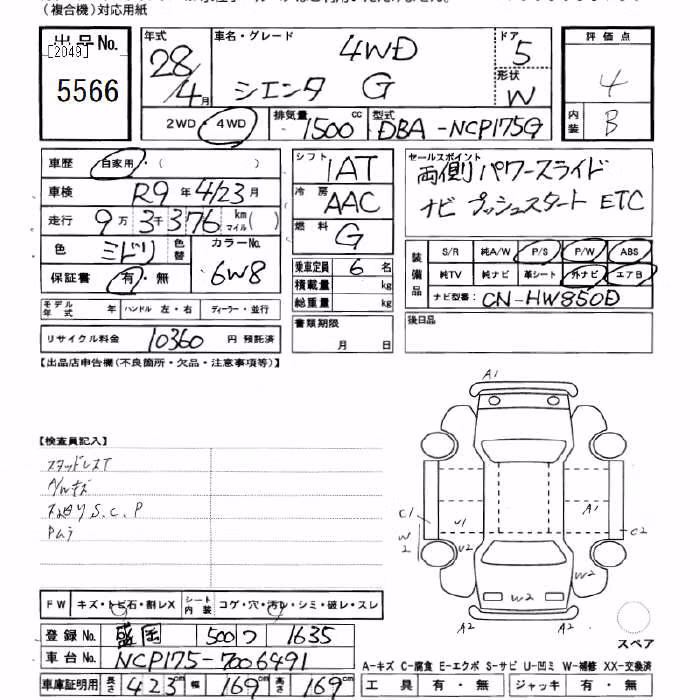 (複合機)対応用紙
出品No.
[2049]
5566
年式
28/4月
車名・グレード
4WD
シエンタ G
ドア
5
形状
W
2WD・4WD
排気量
1500cc
型式
DBA-NCP175G
評価点
4
内装
B
車歴
自家用・( )
車検
R9年4/23月
走行
9万3千376km マイル( )
色
ミドリ
色替
カラーNo.
6W8
保証書
有・無
シフト
IAT
冷房
AAC
燃料
G
乗車定員 6名
積載量 kg
総重量 kg
セールスポイント
両側パワースライド
ナビ プッシュスタート ETC
装備品
S/R 純A/W P/S P/W ABS
純TV 純ナビ 革シート 外ナビ エアB
ナビ型番: CN-HW850D
モデル年式 年 ハンドル 左・右 ディーラー・並行
リサイクル料金 10360円 預託済
書類期限
月 日
後日品
【出品店申告欄(不良箇所・欠品・注意事項等)】
【検査員記入】
スタッドレスT
A/Wキズ
下廻りS.C.P
Pムラ
A1
C1
W2
U1
U2
A1
C2
W2
W2
A2
A2
スペア
FW キズ・トビ石・割レX
シート内装 コゲ・穴・汚レ・シミ・破レ・スレ
登録No. 盛岡 500 つ 1635
車台No. NCP175-7006491
車庫証明用 長さ 423cm 幅 169cm 高さ 169cm
A-キズ C-腐食 E-エクボ S-サビ U-凹ミ W-補修 XX-交換済
工具 有・無 ジャッキ 有・無